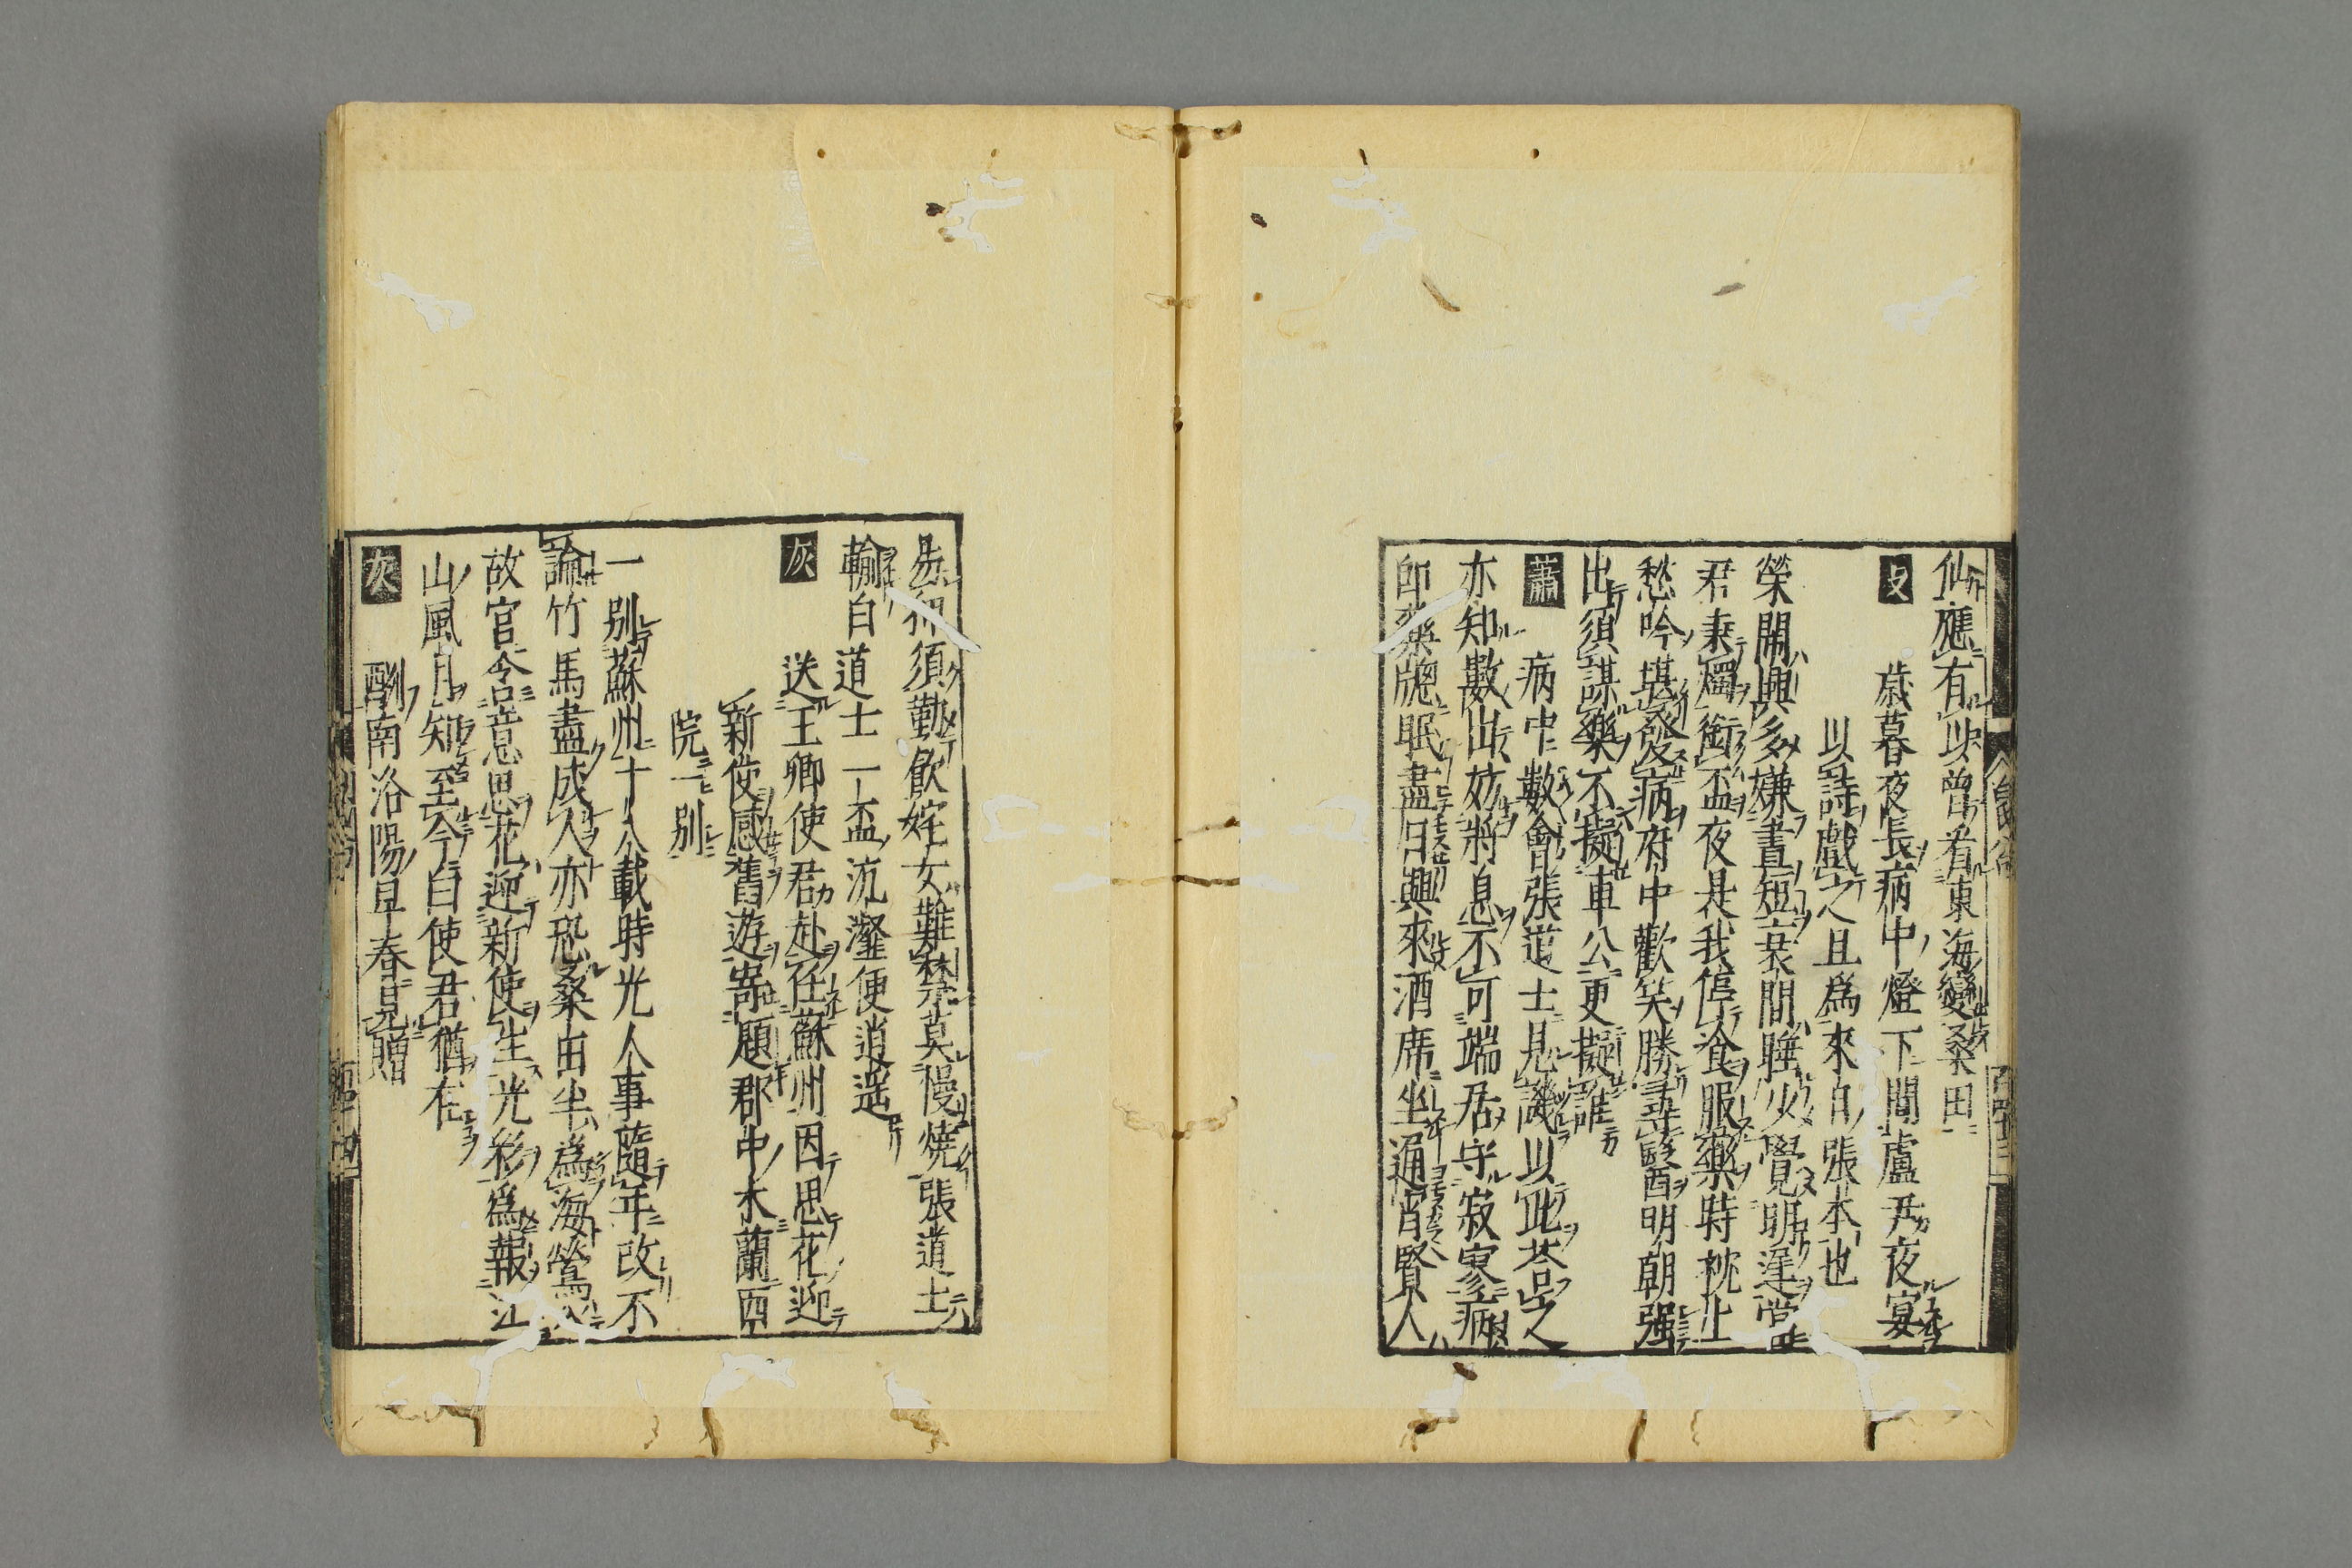 仙應有以曽看東海變桑田
支 歳暮夜長病中燈下聞盧尹夜宴
以詩戲之且爲來日張本也
榮鬧興多嫌晝短衰間睡少覺明遲當
君秉燭銜盃夜是我停飡服藥時枕上
愁吟堪發病府中歡笑勝尋醫明朝強
出須謀樂不擬車公更擬誰
蕭 病中數會張道士見譏以此荅之
亦知數出妨將息不可端居守寂寥病
即藥牕眠盡日興來酒席坐通宵賢人
易狎須勤飲姹女難禁莫慢燒張道士
輸白道士一盃沆瀣便逍遥
灰 送王卿使君赴任蘇州因思花迎
新使感舊遊寄題郡中木蘭西
院一別
一別蘇州十八載時光人事隨年改不
論竹馬盡成人亦恐桑田半爲海鶯
故官含意思花迎新使生光彩爲報江
山風月知至今白使君猶在
灰 酬南洛陽早春見贈